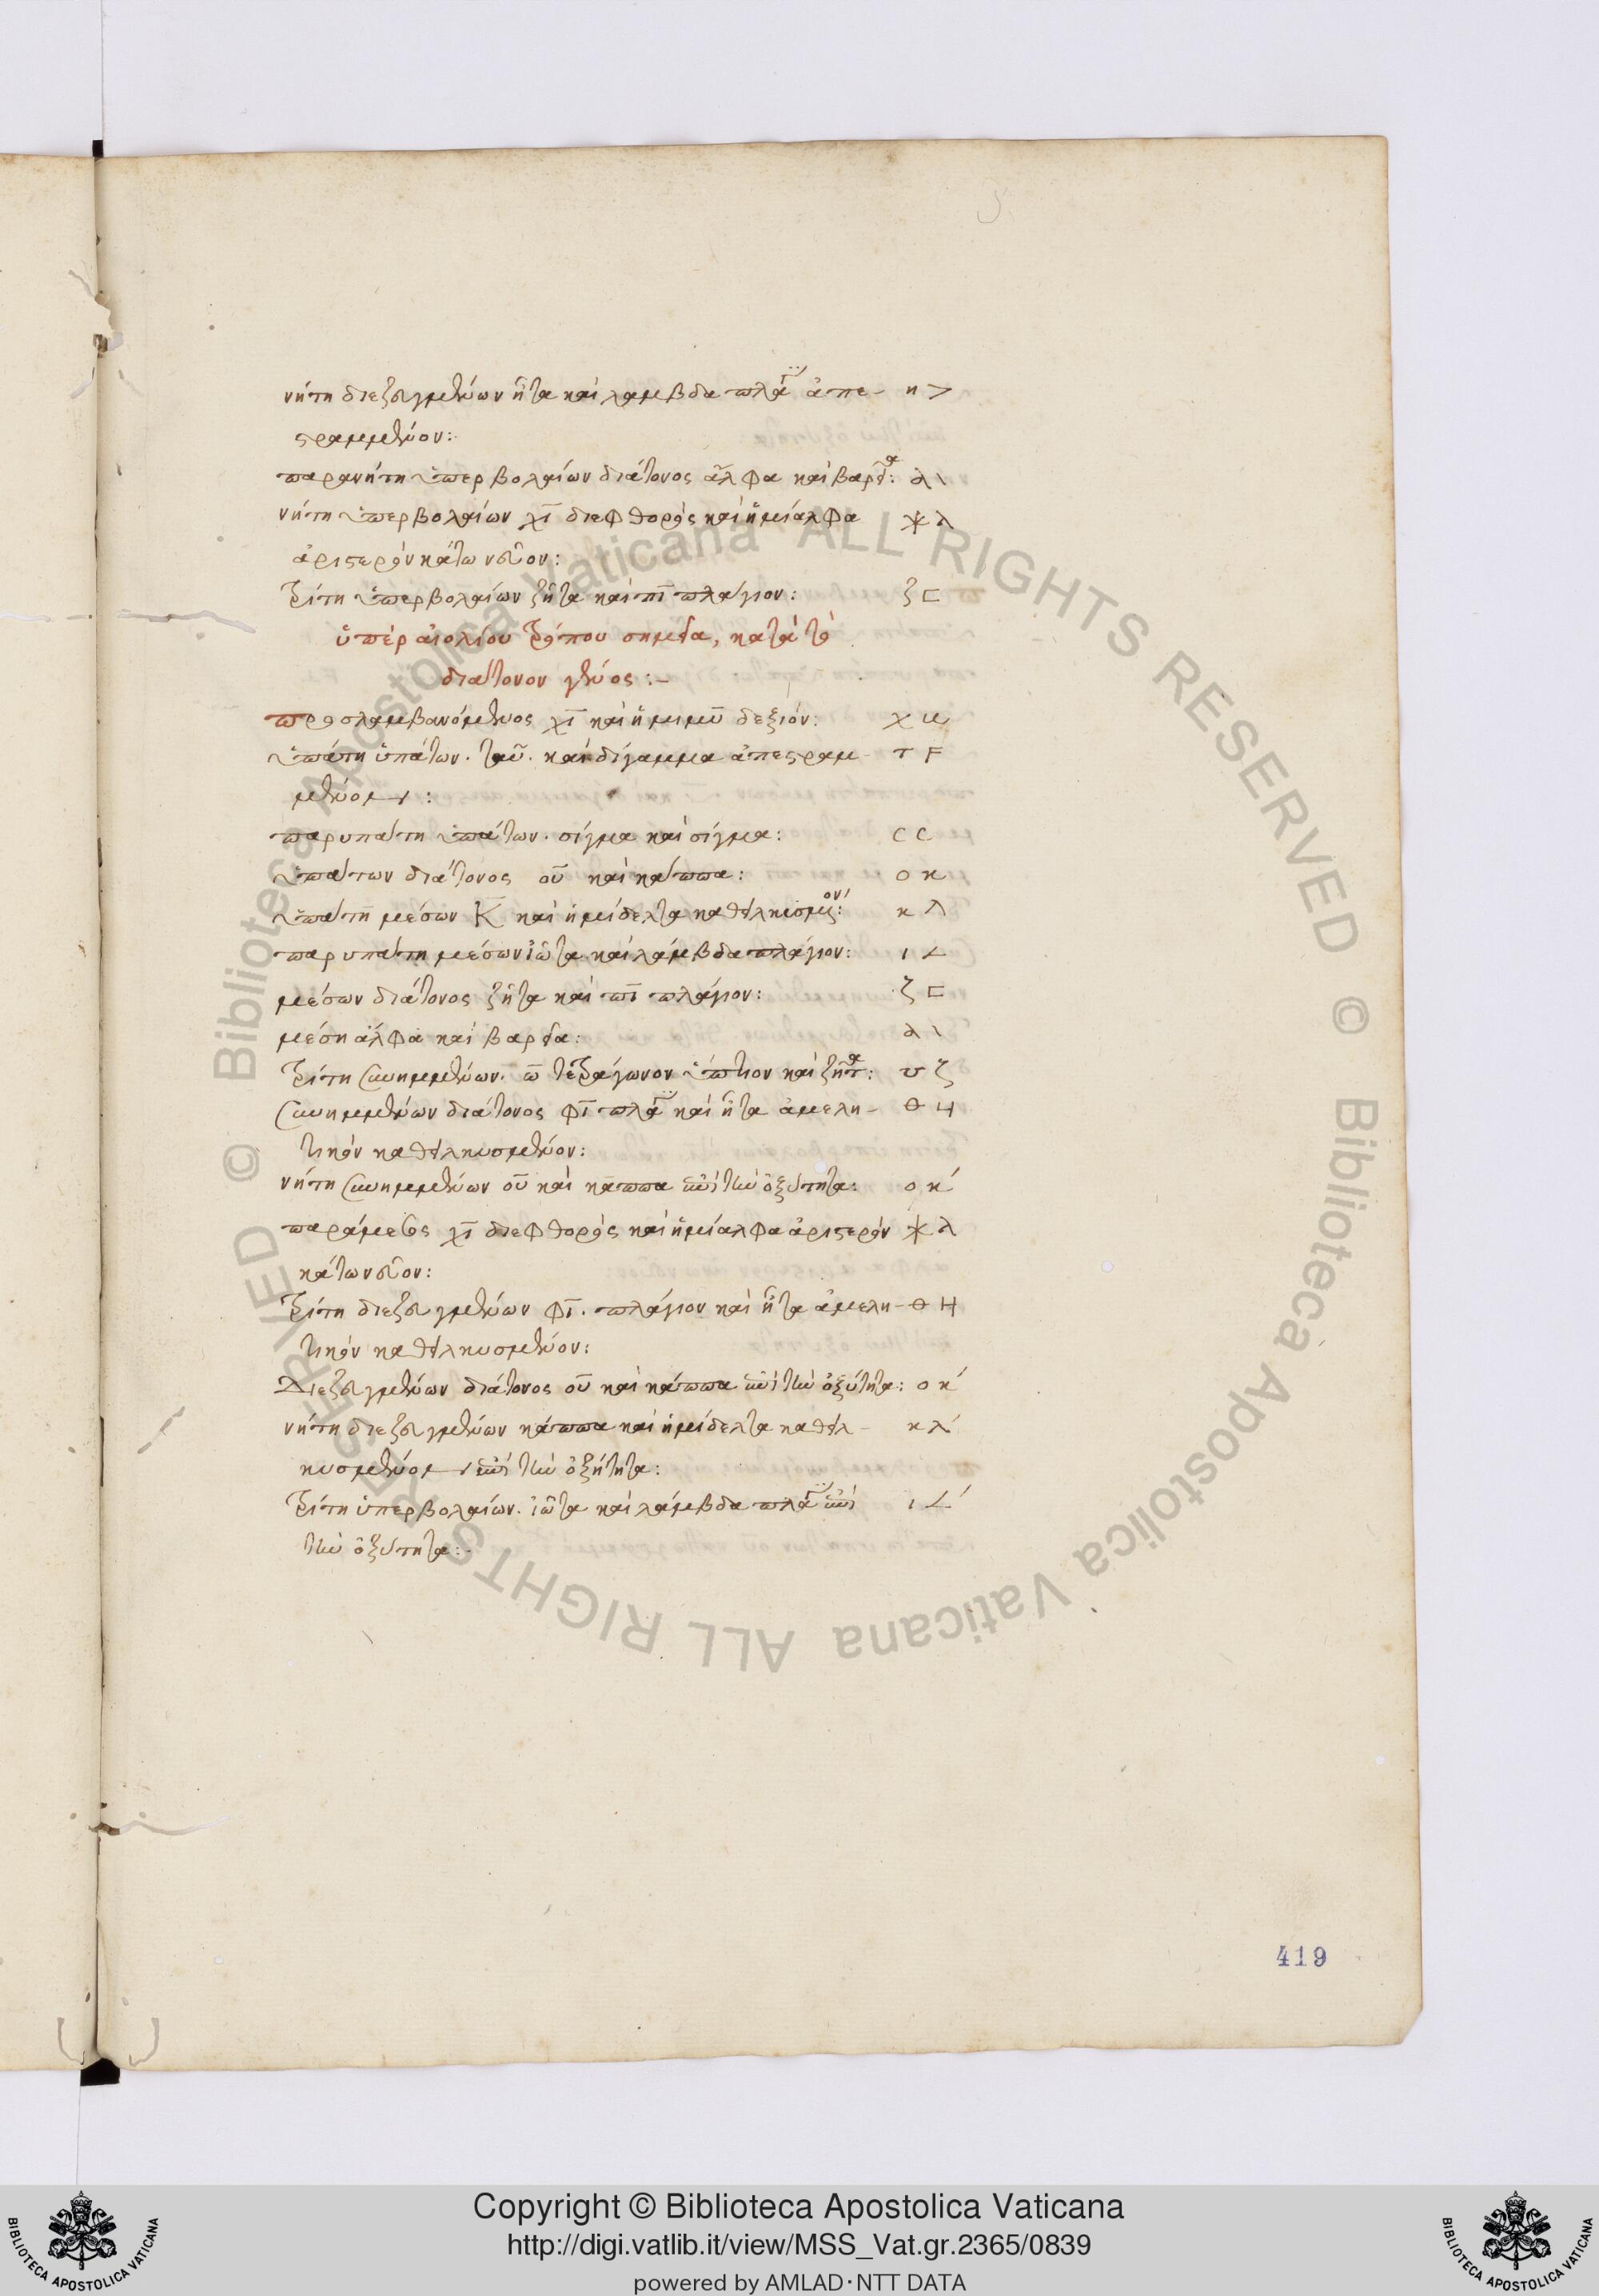 νήτη διεζευγμένων ἦτα καὶ λαμβδα πλά ἀπε- η >
στραμμένον:
παρανήτη ὑπερβολαίων διάτονος ἄλφα καὶ βαρεῖα: λ \
νήτη ὑπερβολαίων χῖ διεφθορὸς καὶ ἡμίαλφα ⚹ λ
ἀριστερὸν κάτω νεῦον:
τρίτη ὑπερβολαίων ζῆτα καὶ πῖ πλάγιον: ζ ⊏
ὑπὲρ αἰολίου τρόπου σημεῖα, κατὰ τὸ
διάτονον γένος :-
προσλαμβανόμενος χῖ καὶ ἡμιμῦ δεξιόν: χ
ὑπάτη ὑπάτων. ταῦ. καὶ δίγαμμα ἀπεστραμ- τ F
μένον:
παρυπάτη ὑπάτων. σίγμα καὶ σίγμα: C C
ὑπάτων διάτονος οὖ καὶ κάππα: ο κ
ὑπάτη μέσων K καὶ ἡμίδελτα καθειλκυσμένον: κ λ
παρυπάτη μέσων ἰῶτα καὶ λάμβδα πλάγιον: ι <
μέσων διάτονος ζῆτα καὶ πῖ πλάγιον: ζ ⊏
μέση ἄλφα καὶ βαρεῖα: λ \
τρίτη συνημμένων. ω τετράγωνον ὕπτιον καὶ ζῆτα: ʊ ζ
συνημμένων διάτονος φῖ πλά καὶ ἦτα ἀμελη- Θ Η
τικὸν καθειλκυσμένον:
νήτη συνημμένων οὖ καὶ κάππα ἐπὶ τὴν ὀξύτητα: ο κ´
παράμεσος χῖ διεφθορὸς καὶ ἡμίαλφα ἀριστερὸν ⚹ λ
κάτω νεῦον:
τρίτη διεζευγμένων φῖ. πλάγιον καὶ ἦτα ἀμελη- Θ Η
τικὸν καθειλκυσμένον:
Διεζευγμένων διάτονος οὖ καὶ κάππα ἐπὶ τὴν ὀξύτητα: ο κ´
νήτη διεζευγμένων κάππα καὶ ἡμίδελτα καθειλ- κ λ´
κυσμένον ἐπὶ τὴν ὀξήτητα:
τρίτη ὑπερβολαίων. ἰῶτα καὶ λάμβδα πλά ἐπὶ ι <´
τὴν ὀξύτητα:-
419
Copyright © Biblioteca Apostolica Vaticana
http://digi.vatlib.it/view/MSS_Vat.gr.2365/0839
powered by AMLAD·NTT DATA
BIBLIOTECA APOSTOLICA VATICANA
BIBLIOTECA APOSTOLICA VATICANA
© Biblioteca Apostolica Vaticana ALL RIGHTS RESERVED © Biblioteca Apostolica Vaticana ALL RIGHTS RESERVED